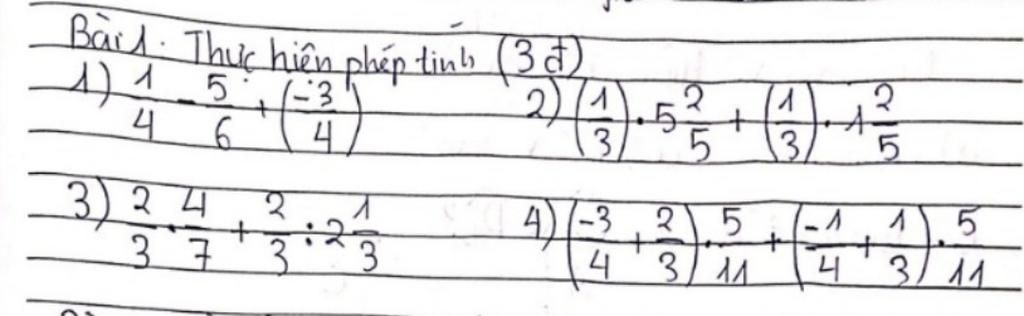 Bài 1. Thực hiện phép tính (3đ)
1) \frac{1}{4} - \frac{5}{6} + \left(\frac{-3}{4}\right) 2) \left(\frac{1}{3}\right) \cdot 5\frac{2}{5} + \left(\frac{1}{3}\right) \cdot 1\frac{2}{5}
3) \frac{2}{3} \cdot \frac{4}{7} + \frac{2}{3} : 2\frac{1}{3} 4) \left(\frac{-3}{4} + \frac{2}{3}\right) \cdot \frac{5}{11} + \left(\frac{-1}{4} + \frac{1}{3}\right) \cdot \frac{5}{11}